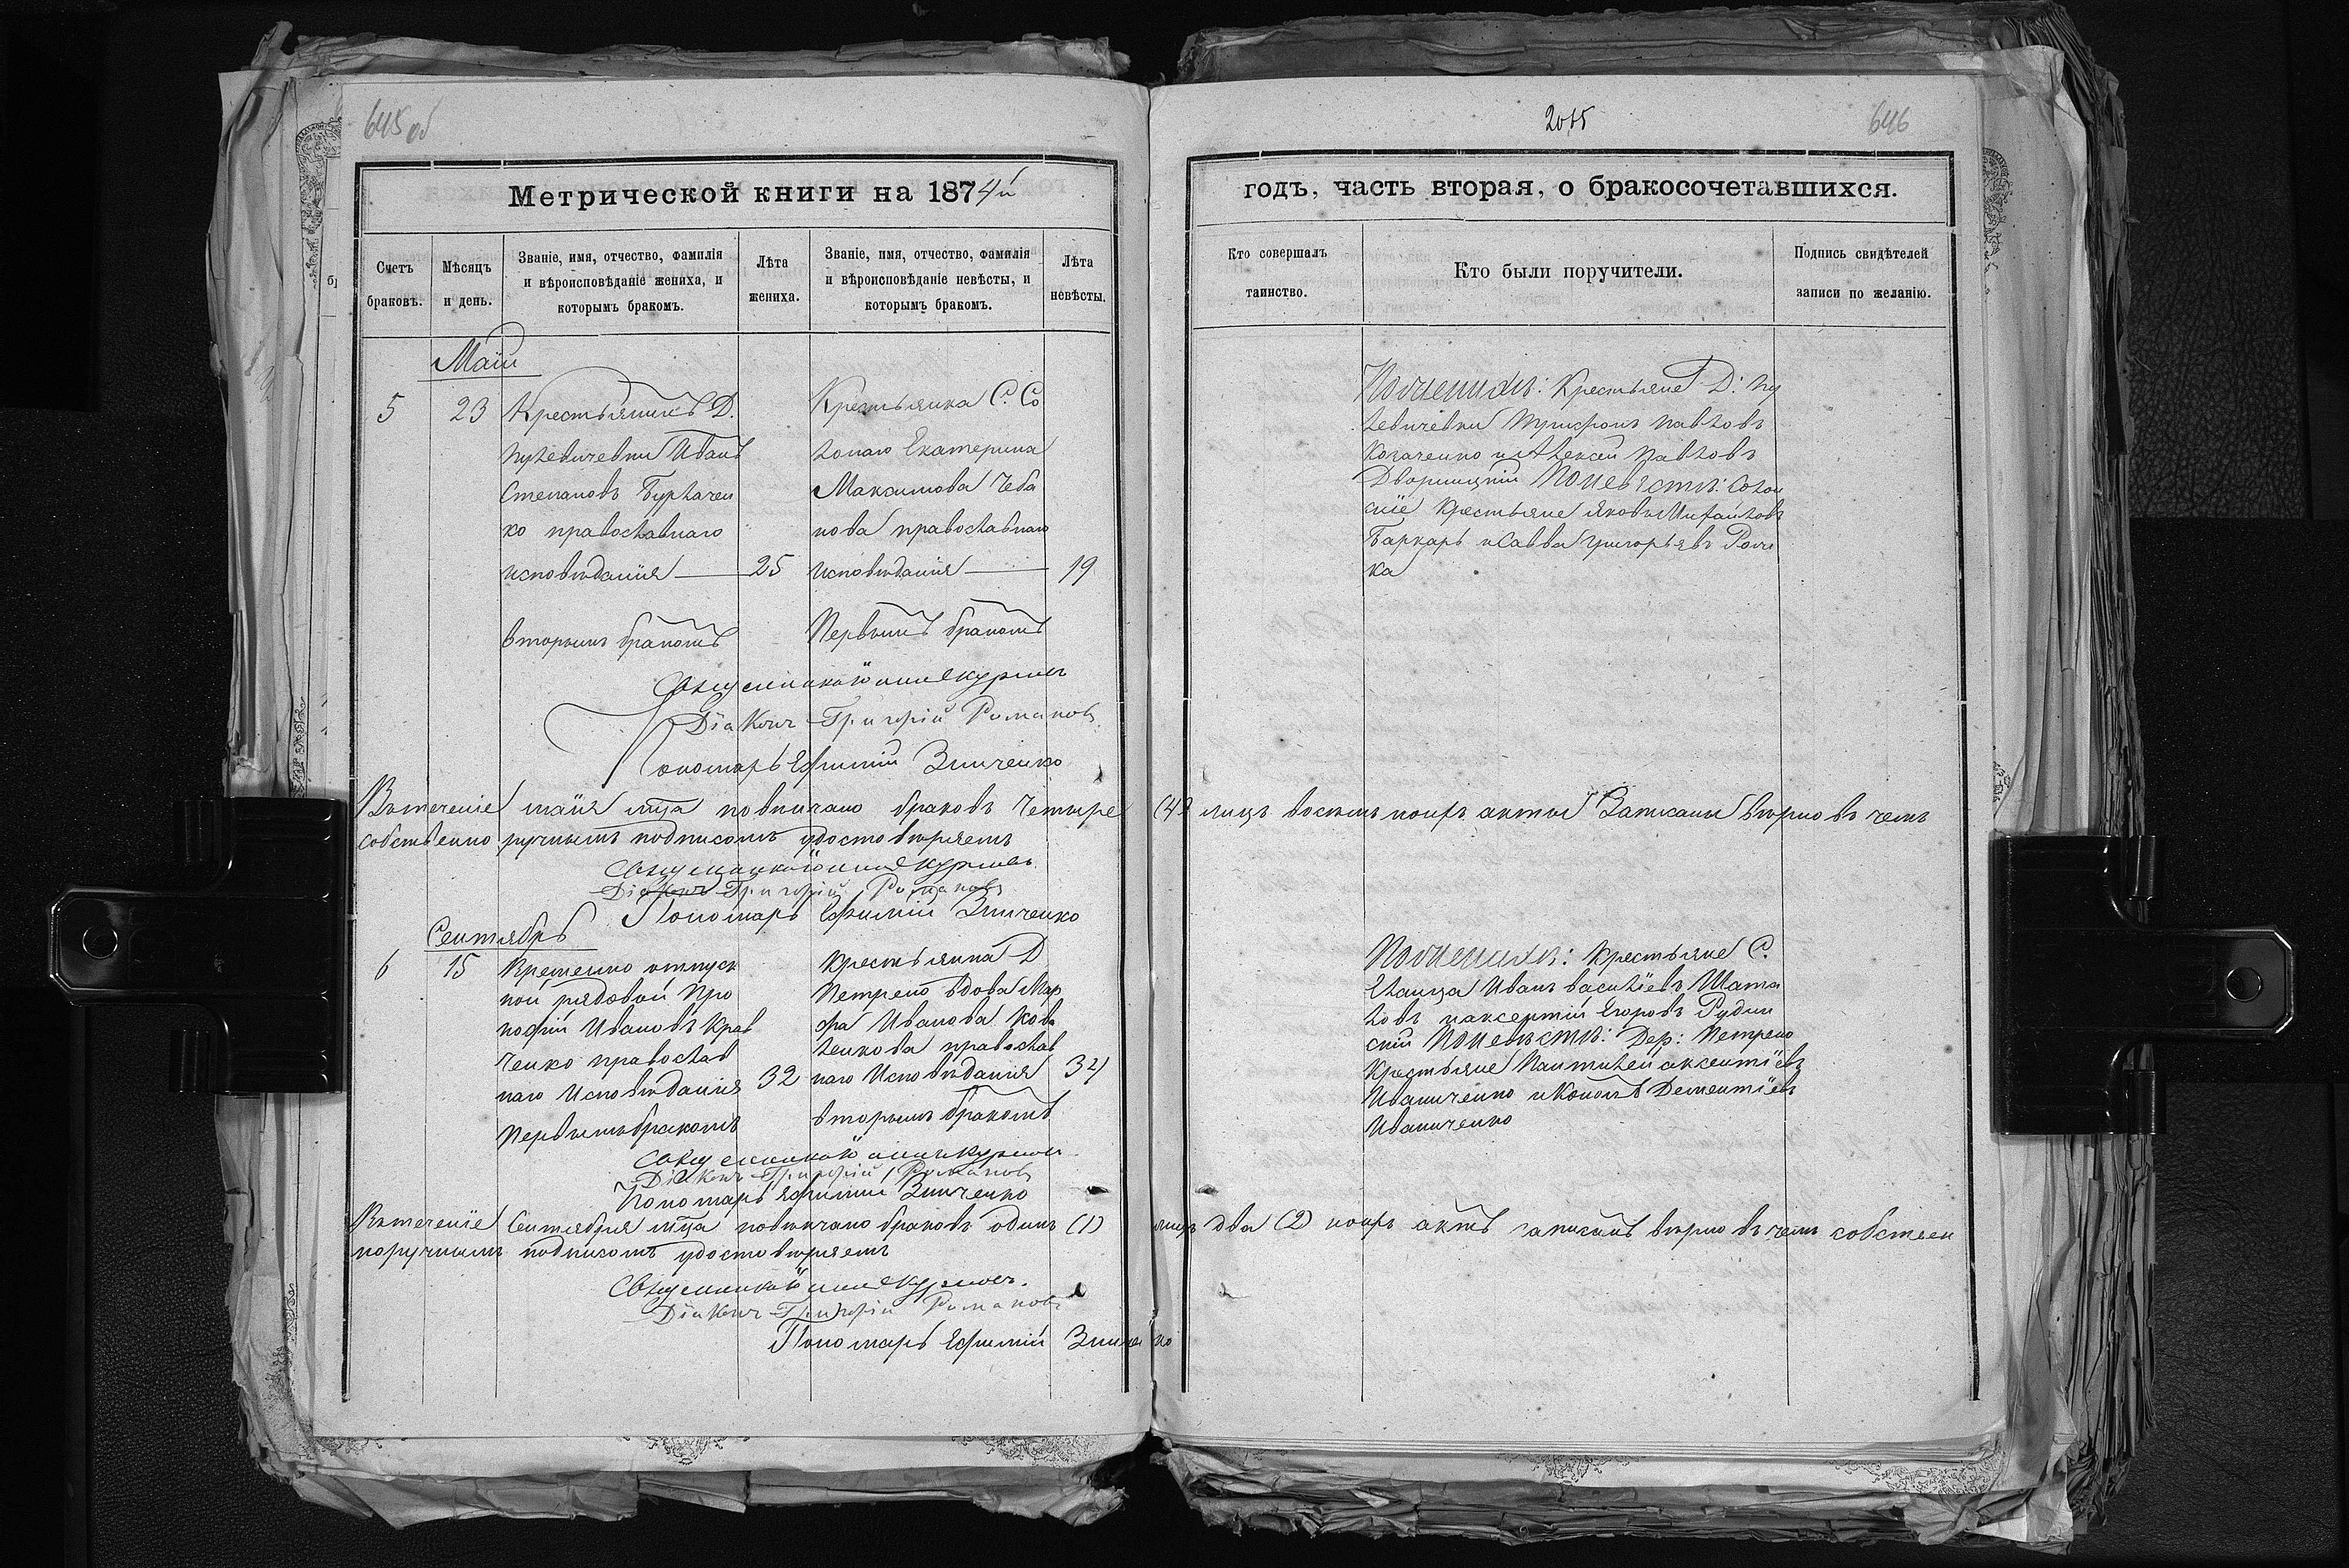 645 об
2015
646
Метрической книги на 1874й
годъ, часть вторая, о бракосочетавшихся.
Счетъ браковъ.
Мѣсяцъ и день.
Званіе, имя, отчество, фамилія и вѣроисповѣданіе жениха, и которымъ бракомъ.
Лѣта жениха.
Званіе, имя, отчество, фамилія и вѣроисповѣданіе невѣсты, и которымъ бракомъ.
Лѣта невѣсты.
Кто совершалъ таинство.
Кто были поручители.
Подпись свидѣтелей записи по желанію.
Маій
5
23
Крестьянинъ Д.
Иванъ
Степановъ Бурлачен
ко православнаго
исповѣданія
25
Вторымъ бракомъ
Крестьянка С. Со
лонаго Екатерина
Максимова Чеба
нова православнаго
исповѣданія
19
Первымъ бракомъ
По женихѣ: Крестьяне Д: Пу
левичевки Трифонъ Павловъ
Козаченко и Алексей Павловъ
Дворницкій По невѣстѣ: Солон
скіе Крестьяне Яковъ Михайловъ
Баркарь и Савва Григорьевъ
ка
Священникъ
Діаконъ Григорій Романовъ
Пономарь Ефимій Зинченко
Въ теченіе маія мца повѣнчано браковъ Четыре (4) лицъ восемь коихъ акты Записаны вѣрно въ чемъ
собственно ручнымъ подписомъ удостовѣряемъ
Священникъ
Діаконъ Григорій Романовъ
Пономарь Ефимій Зинченко
Сентябрь
6
15
Временно отпуск
ной рядовой Про
кофій Ивановъ Крав
ченко православ
наго Исповѣданія
32
Первымъ бракомъ
Крестьянка Д
Петрено вдова Мар
фа Иванова Кова
ленкова православ
наго Исповѣданія
34
вторымъ бракомъ
По женихѣ: Крестьяне С.
Еланца Иванъ Васильевъ Шата
ловъ Егоровъ Рудни
скій По невѣстѣ: Дер: Петрено
Крестьяне Пантилей Аксентіевъ
Иваниченко и Кононъ Дементіевъ
Иваниченко
Священникъ
Діаконъ Григорій Романовъ
Пономарь Ефимій Зинченко
Въ теченіе Сентября мца повѣнчано браковъ одинъ (1) лицъ два (2) коихъ актъ записанъ вѣрно въ чемъ собствен
норучнымъ подписомъ удостовѣряемъ
Священникъ
Діаконъ Григорій Романовъ
Пономарь Ефимій Зинченко